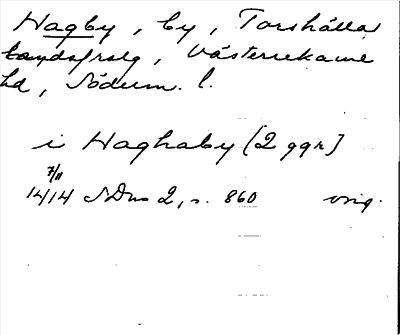 Hagby, by, Torshälla
landsförs, Västerrekarne
hd, Söderm. l.
i Haghaby [2 ggr]
7/11
1414 SDns 2, s. 860 orig.